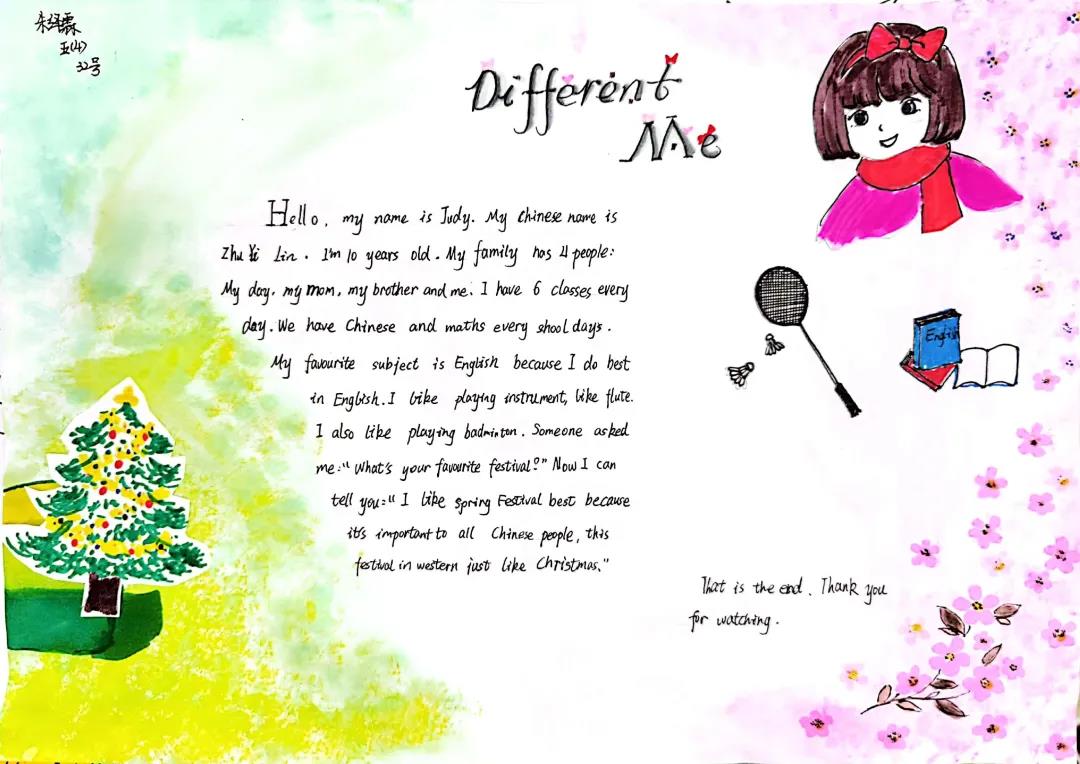 朱绎霖
五(4)
32号
Different
Me
Hello, my name is Judy. My Chinese name is
Zhu Yi Lin. I'm 10 years old. My family has 4 people:
My day, my mom, my brother and me. I have 6 classes every
day. We have Chinese and maths every shool days.
My favourite subject is English because I do best
in English. I like playing instrument, like flute.
I also like playing badminton. Someone asked
me:"What's your favourite festival?" Now I can
tell you:"I like Spring Festival best because
it's important to all Chinese people, this
festival in western just like Christmas."
English
That is the end. Thank you
for watching.